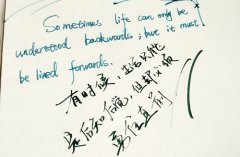 Sometimes life can only be
understood backwards, but it must
be lived forwards.
有时候，生活只能
是后知后觉，但却必须
勇往直前